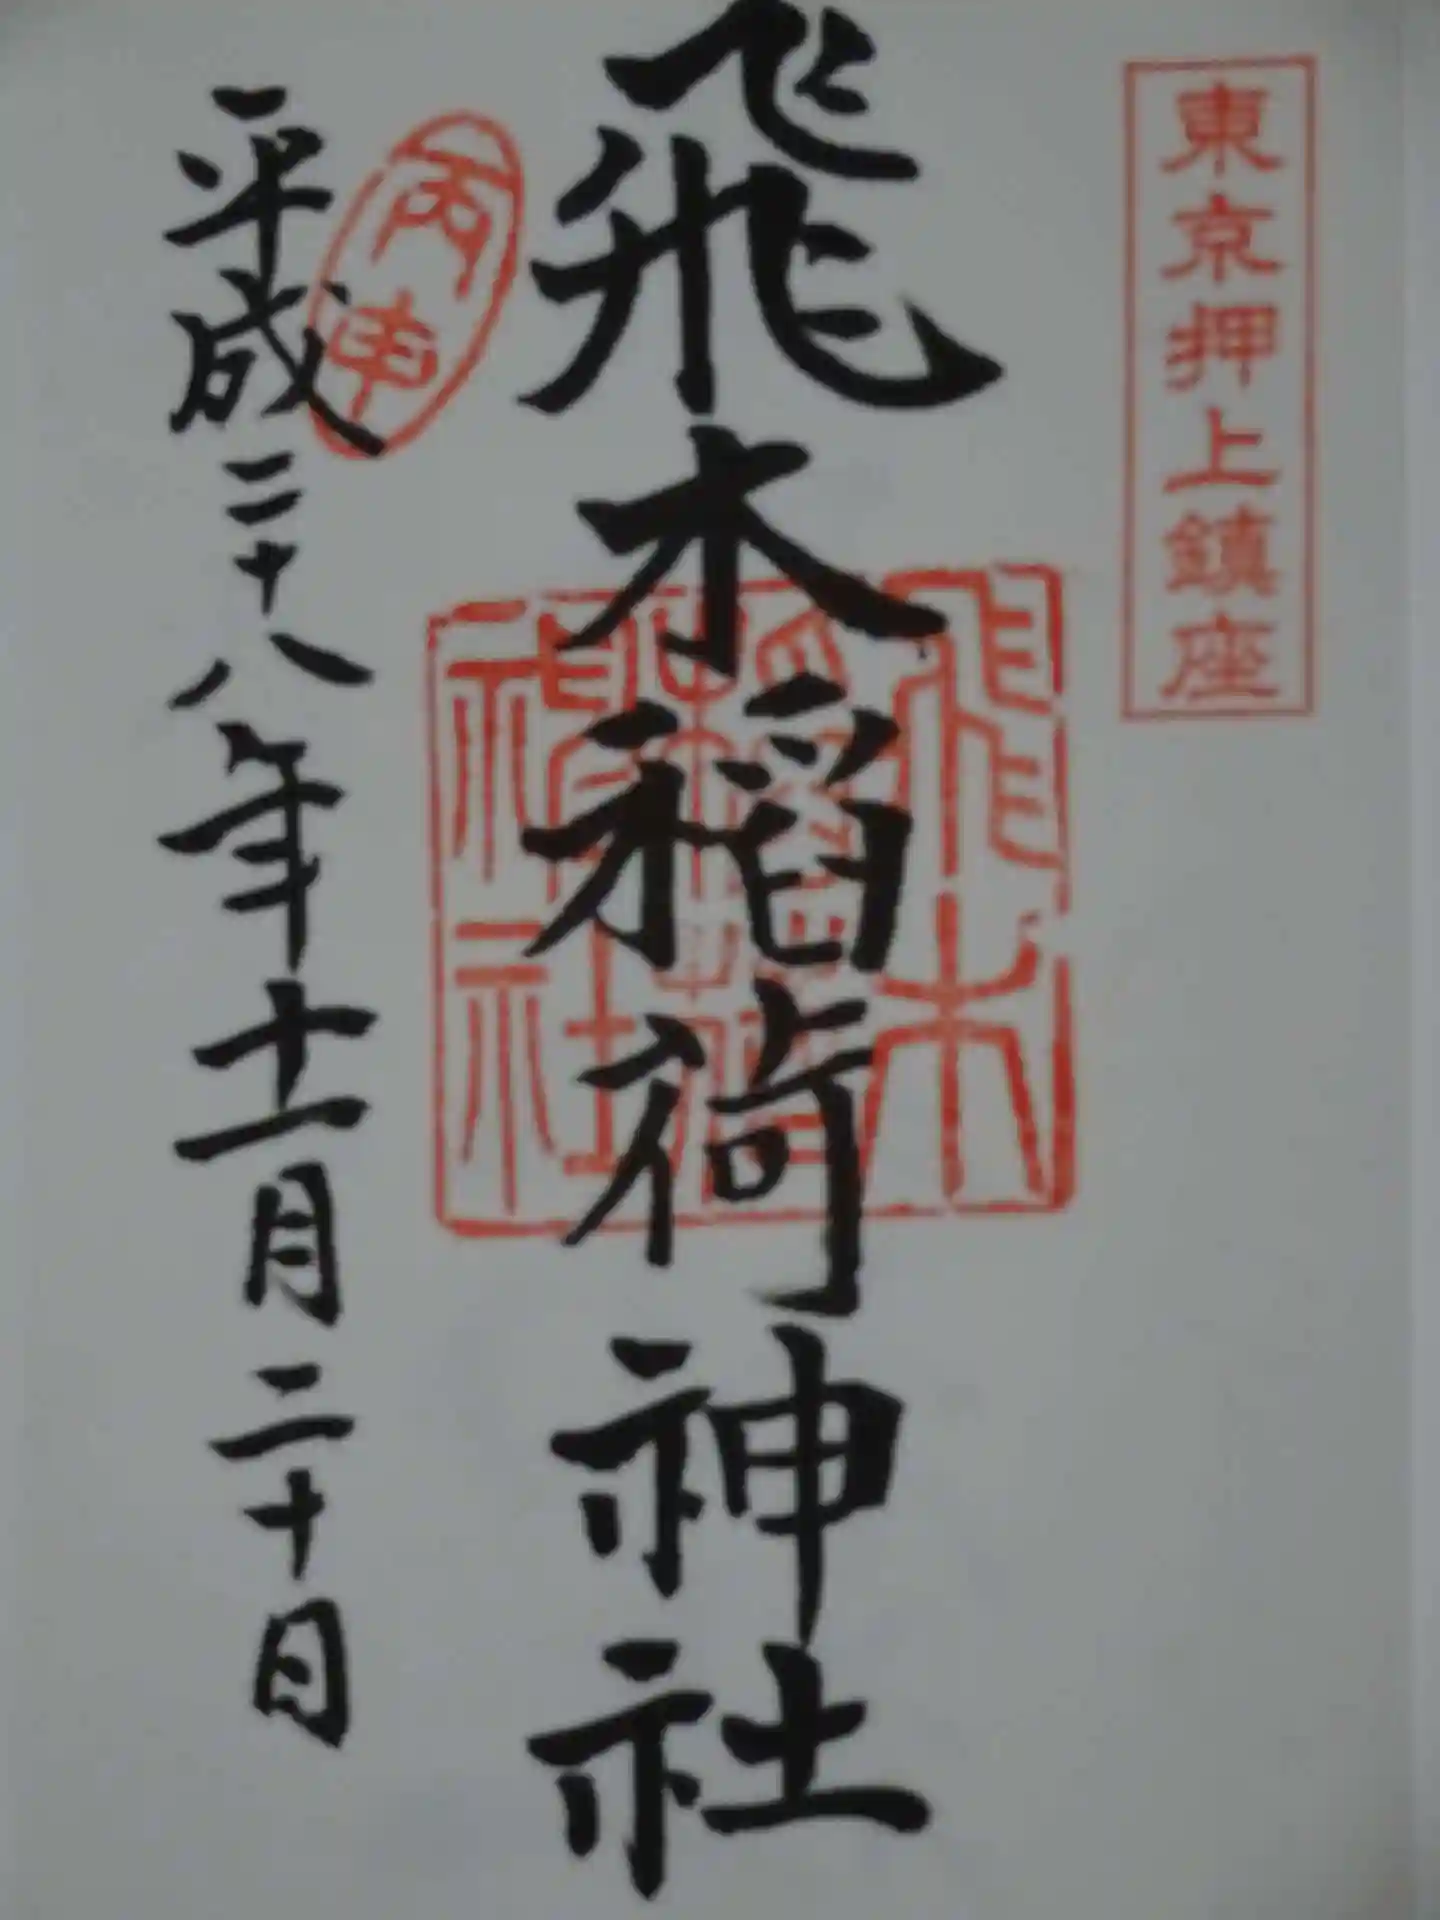 東京押上鎮座
飛木稲荷神社
飛木稲荷神社
丙申
平成二十八年十一月二十日